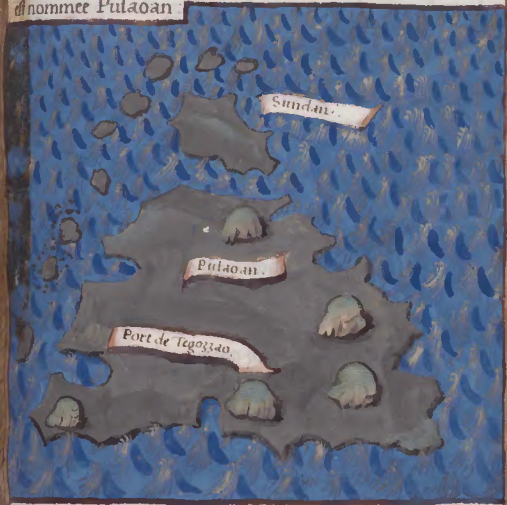 est nommee Pulaoan :
Sundan :
Pulaoan .
Port de Tegozzao .